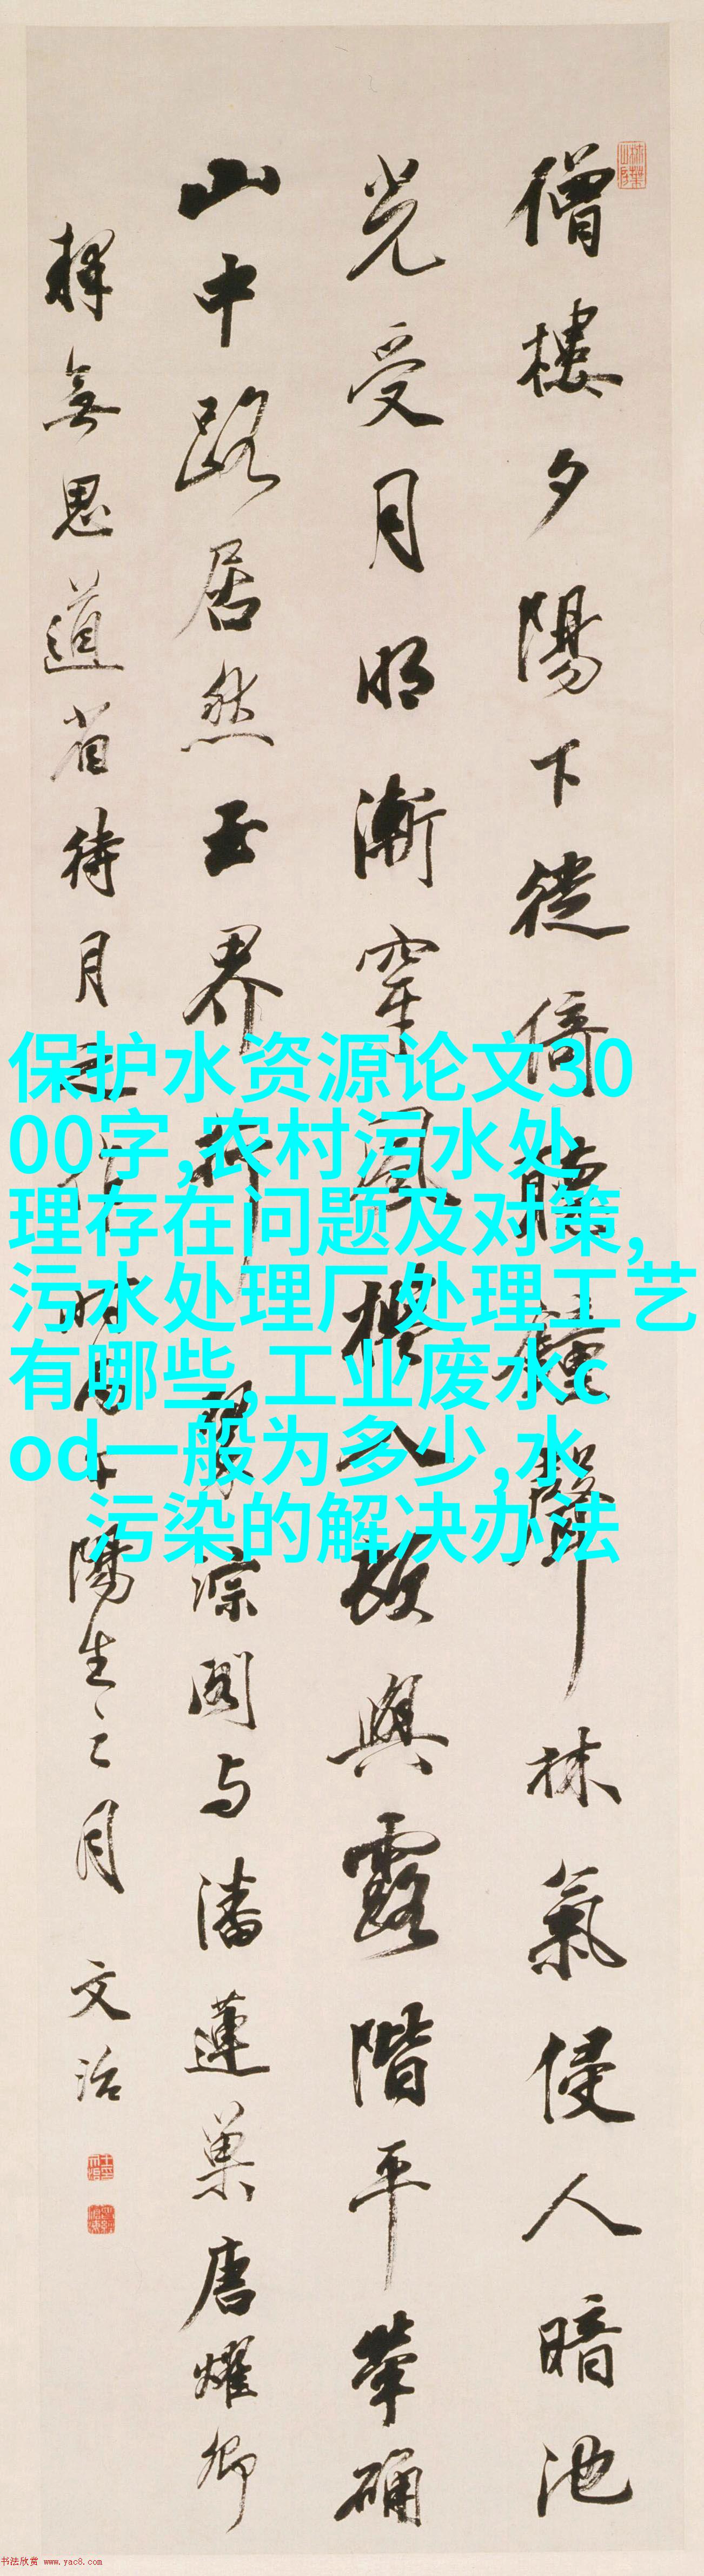 僧樓夕陽下徙倚聽鐘聲林氣侵人暗池
光受月明漸穿風檻入故與露階平葷确
山中路居然玉界行
翠淙閣与潘蓮巢唐耀卿
釋無思道省待月之作時戊午陽生之月 文治
保护水资源论文30
00字,农村污水处
理存在问题及对策,
污水处理厂处理工艺
有哪些,工业废水c
od一般为多少,水
污染的解决办法
书法欣赏 www.yac8.com